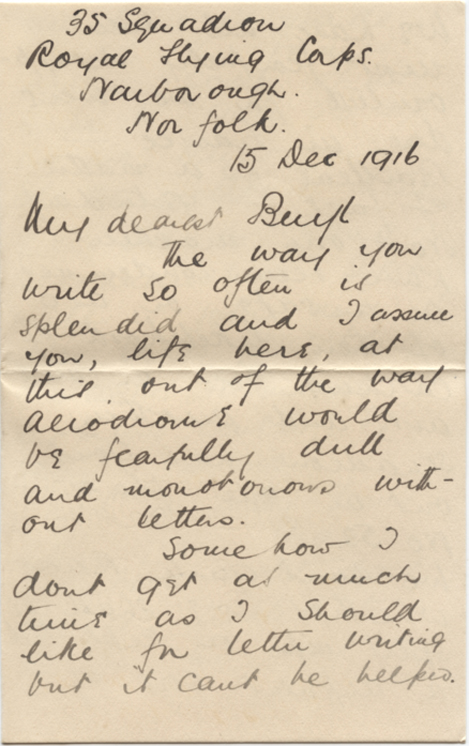 35 Squadron
Royal Flying Corps.
Narborough.
Norfolk.
15 Dec 1916
My dearest Beryl
the way you
write so often is
splendid and I assure
you, life here, at
this out of the way
aerodrome would
be fearfully dull
and monotonous with-
out letters.
Somehow I
dont get as much
time as I should
like for letter writing
but it cant be helped.